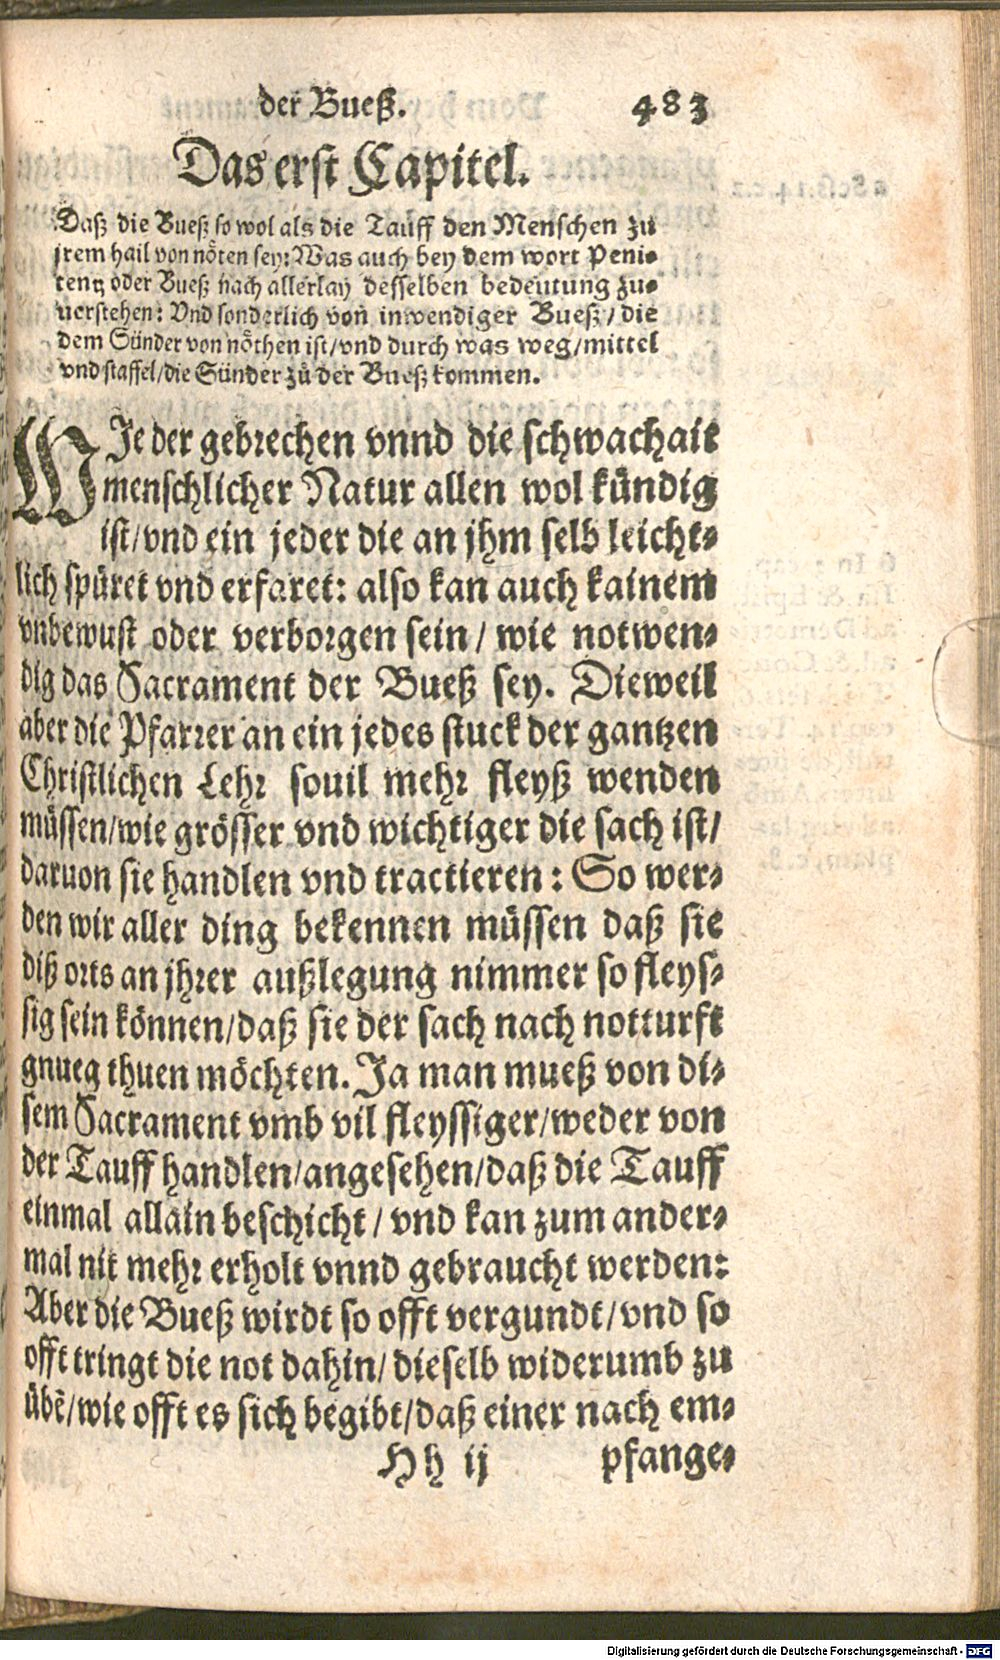 der Bueß. 483
Das erst Capitel.
Daß die Bueß so wol als die Tauff den Menschen zu
jrem hail von nöten sey: Was auch bey dem wort Peni-
tentz oder Bueß nach allerlay desselben bedeutung zu-
uerstehen: Vnd sonderlich von inwendiger Bueß/ die
dem Sünder von nöthen ist/ vnd durch was weg/ mittel
vnd staffel/ die Sünder zů der Bueß kommen.
WJe der gebrechen vnnd die schwachait
menschlicher Natur allen wol kündig
ist/ vnd ein jeder die an jhm selb leicht-
lich spüret vnd erfaret: also kan auch kainem
vnbewust oder verborgen sein/ wie notwen-
dig das Sacrament der Bueß sey. Dieweil
aber die Pfarrer an ein jedes stuck der gantzen
Christlichen Lehr souil mehr fleyß wenden
müssen/ wie grösser vnd wichtiger die sach ist/
daruon sie handlen vnd tractieren: So wer-
den wir aller ding bekennen müssen daß sie
diß orts an jhrer außlegung nimmer so fleys-
sig sein können/ daß sie der sach nach notturft
gnueg thuen möchten. Ja man mueß von di-
sem Sacrament vmb vil fleyssiger/ weder von
der Tauff handlen/ angesehen/ daß die Tauff
einmal allain beschicht/ vnd kan zum ander-
mal nit mehr erholt vnnd gebraucht werden:
Aber die Bueß wirdt so offt vergundt/ vnd so
offt tringt die not dahin/ dieselb widerumb zu
übẽ/ wie offt es sich begibt/ daß einer nach em-
Hh ij pfange-
Digitalisierung gefördert durch die Deutsche Forschungsgemeinschaft - DFG